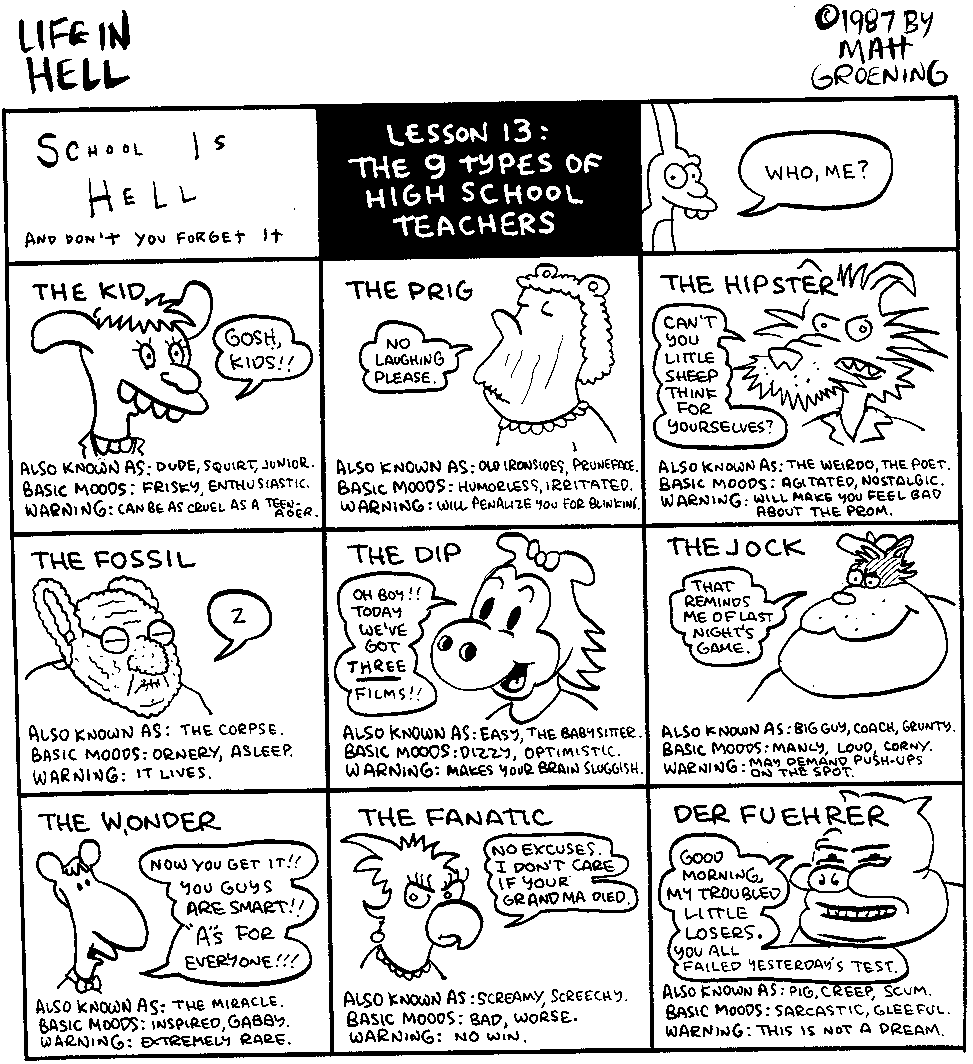 LIFE IN
HELL
©1987 BY
MATT
GROENING
SCHOOL IS
HELL
AND DON'T YOU FORGET IT
LESSON 13:
THE 9 TYPES OF
HIGH SCHOOL
TEACHERS
WHO, ME?
THE KID
GOSH,
KIDS!!
ALSO KNOWN AS: DUDE, SQUIRT, JUNIOR.
BASIC MOODS: FRISKY, ENTHUSIASTIC.
WARNING: CAN BE AS CRUEL AS A TEEN-
AGER.
THE PRIG
NO
LAUGHING
PLEASE.
ALSO KNOWN AS: OLD IRONSIDES, PRUNEFACE.
BASIC MOODS: HUMORLESS, IRRITATED.
WARNING: WILL PENALIZE YOU FOR BLINKING.
THE HIPSTER
CAN'T
YOU
LITTLE
SHEEP
THINK
FOR
YOURSELVES?
ALSO KNOWN AS: THE WEIRDO, THE POET.
BASIC MOODS: AGITATED, NOSTALGIC.
WARNING: WILL MAKE YOU FEEL BAD
ABOUT THE PROM.
THE FOSSIL
Z
ALSO KNOWN AS: THE CORPSE.
BASIC MOODS: ORNERY, ASLEEP.
WARNING: IT LIVES.
THE DIP
OH BOY!!
TODAY
WE'VE
GOT
THREE
FILMS!!
ALSO KNOWN AS: EASY, THE BABYSITTER.
BASIC MOODS: DIZZY, OPTIMISTIC.
WARNING: MAKES YOUR BRAIN SLUGGISH.
THE JOCK
THAT
REMINDS
ME OF LAST
NIGHT'S
GAME.
ALSO KNOWN AS: BIG GUY, COACH, GRUNTY.
BASIC MOODS: MANLY, LOUD, CORNY.
WARNING: MAY DEMAND PUSH-UPS
ON THE SPOT.
THE WONDER
NOW YOU GET IT!!
YOU GUYS
ARE SMART!!
"A"S FOR
EVERYONE!!!
ALSO KNOWN AS: THE MIRACLE.
BASIC MOODS: INSPIRED, GABBY.
WARNING: EXTREMELY RARE.
THE FANATIC
NO EXCUSES.
I DON'T CARE
IF YOUR
GRANDMA DIED.
ALSO KNOWN AS: SCREAMY, SCREECHY.
BASIC MOODS: BAD, WORSE.
WARNING: NO WIN.
DER FUEHRER
GOOD
MORNING,
MY TROUBLED
LITTLE
LOSERS.
YOU ALL
FAILED YESTERDAY'S TEST.
ALSO KNOWN AS: PIG, CREEP, SCUM.
BASIC MOODS: SARCASTIC, GLEEFUL.
WARNING: THIS IS NOT A DREAM.